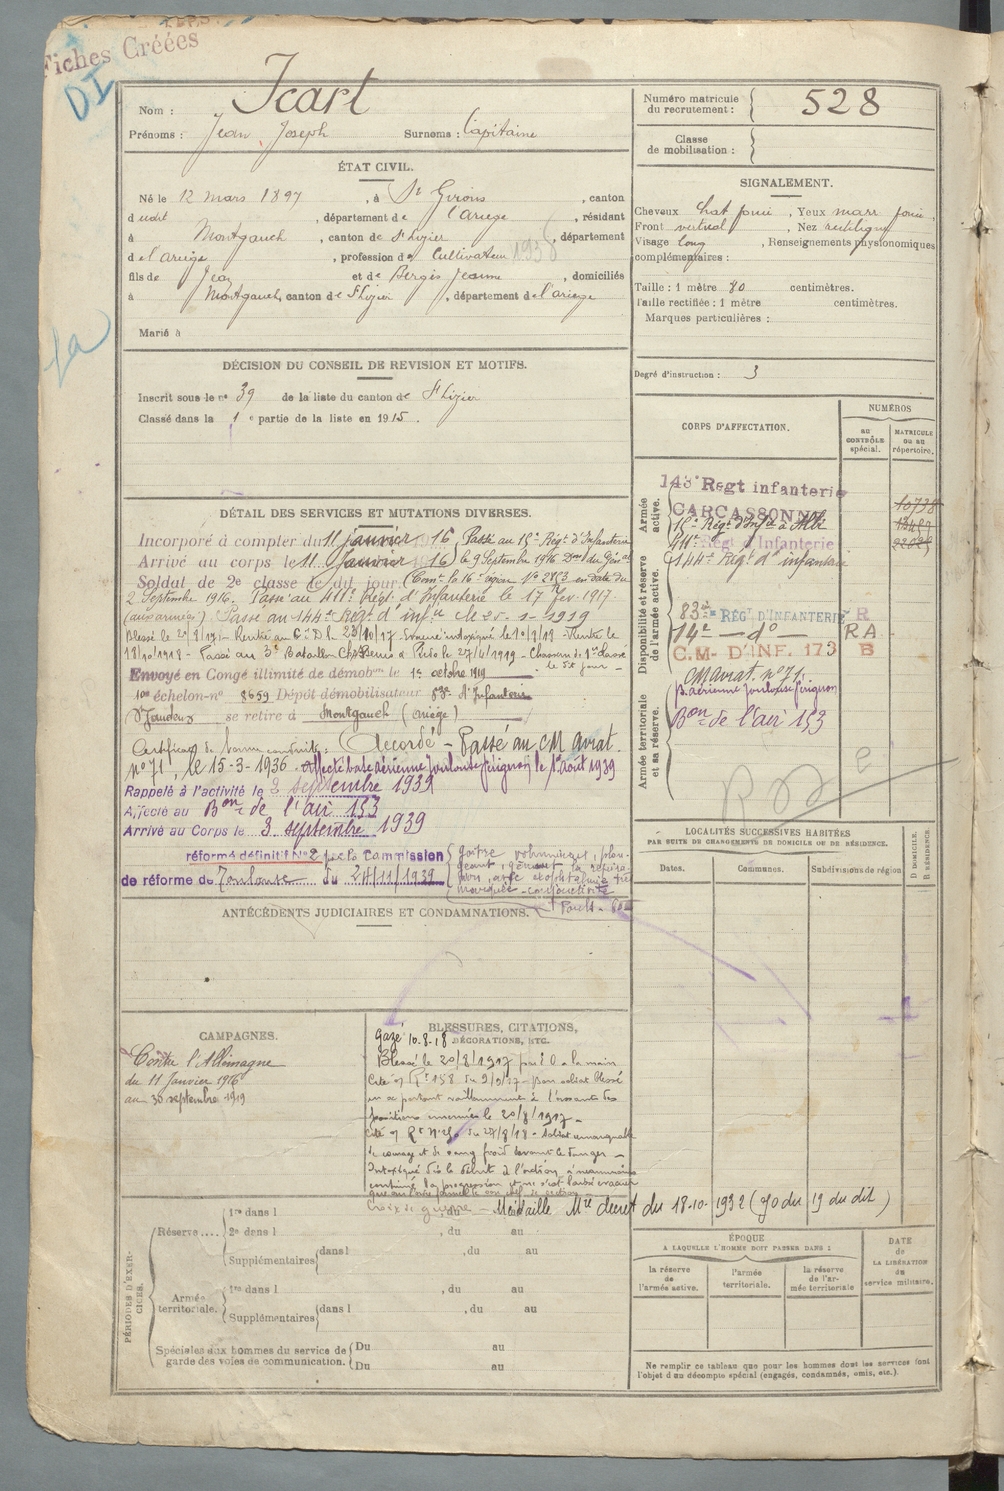 Fiches Créées
DI
Nom : Icart
Prénoms : Jean Joseph Surnoms : Capitaine
Numéro matricule du recrutement : 528
Classe de mobilisation :
ÉTAT CIVIL.
Né le 12 mars 1897, à St Girons, canton
dudit, département de l'ariège, résidant
à Montgauch, canton de St Lizier, département
de l'ariège, profession de Cultivateur 1938
fils de Jean et de Bergès Jeanne, domiciliés
à Montgauch, canton de St Lizier, département de l'ariège
Marié à
SIGNALEMENT.
Cheveux chat foncé, Yeux marr foncé,
Front vertical, Nez rectiligne
Visage long, Renseignements physionomiques
complémentaires :
Taille : 1 mètre 70 centimètres.
Taille rectifiée : 1 mètre centimètres.
Marques particulières :
Degré d'instruction : 3
DÉCISION DU CONSEIL DE REVISION ET MOTIFS.
Inscrit sous le no 39 de la liste du canton de St Lizier
Classé dans la 1e partie de la liste en 1915.
DÉTAIL DES SERVICES ET MUTATIONS DIVERSES.
Incorporé à compter du 11 janvier 1916 Passé au 15e Régt d'Infanterie
Arrivé au corps le 11 Janvier 1916 le 9 Septembre 1916 Don du Génal
Soldat de 2e classe le dit jour (Comt la 16e région No 2853 en date du
2 Septembre 1916. Passé au 411e Régt d'Infanterie le 17 Fév. 1917.
(aux armées) Passé au 144e Régt d'infie le 25-1-1919
Blessé le 20/8/17 - Rentré au C.I.D. le 23/10/17. Evacué intoxiqué le 10/8/18 - Rentré le
18/10/1918 - Passé au 3e Bataillon le 27/4/1919 - Chasseur de 1re classe
le dit jour -
Envoyé en Congé illimité de démobon le 1er octobre 1919
10e échelon no 8659 Dépôt démobilisateur 83e d'Infanterie
St Gaudens se retire à Montgauch (ariège)
Certificat de bonne conduite : Accordé - Passé au CM Avrat.
no 71, le 15-3-1936. Affecté base aérienne Toulouse Francazal le 1er août 1939
Rappelé à l'activité le 2 septembre 1939
Affecté au Bon de l'air 153
Arrivé au Corps le 3 septembre 1939
réformé définitif No 2 par la Commission
de réforme de Toulouse du 24/11/1939
goitre volumineux, plongeant, gênant la respiration, avec exophtalmie très marquée - conjonctivite
CORPS D'AFFECTATION.
NUMÉROS
au CONTRÔLE spécial.
MATRICULE ou au répertoire.
Armée active.
143e Régt infanterie
CARCASSONNE
10738
15e Régt d'Infie à Albi
13489
411e Régt d'Infanterie
144e Régt d'infanterie
Disponibilité et réserve de l'armée active.
83e RÉGT D'INFANTERIE R
14e — do — RA
C.M. D'INF. 173 B
CM avrat. no 71
Armée territoriale et sa réserve.
B. aérienne Toulouse
Bon de l'air 153
ANTÉCÉDENTS JUDICIAIRES ET CONDAMNATIONS.
LOCALITÉS SUCCESSIVES HABITÉES
PAR SUITE DE CHANGEMENTS DE DOMICILE OU DE RÉSIDENCE.
Dates. Communes. Subdivisions de région D DOMICILE. R RÉSIDENCE.
CAMPAGNES.
Contre l'Allemagne
du 11 Janvier 1916
au 30 septembre 1919
BLESSURES, CITATIONS,
DÉCORATIONS, ETC.
Gazé 10-8-18
Blessé le 20/8/1917 par E.O. à la main
Cité O/ Rt 158 du 9/9/17 - Bon soldat blessé
en se portant vaillamment à l'assaut des
positions ennemies le 20/8/1917 -
Cité O/ Rt du 27/8/18 - Soldat remarquable
de courage et de sang froid devant le danger -
Intoxiqué dès le début de l'action a néanmoins
continué la progression et ne s'est laissé évacuer
que sur l'ordre formel de son chef de section -
Croix de guerre - Médaille Mre décret du 18-10-1932 (JO du 19 du dit)
PÉRIODES D'EXERCICES.
Réserve....
1re dans l
2e dans l , du au
Supplémentaires dans l , du au
Armée territoriale.
1re dans l , du au
Supplémentaires dans l , du au
Spéciales aux hommes du service de garde des voies de communication.
Du au
Du au
ÉPOQUE
A LAQUELLE L'HOMME DOIT PASSER DANS :
la réserve de l'armée active.
l'armée territoriale.
la réserve de l'armée territoriale
DATE de LA LIBÉRATION du service militaire.
Ne remplir ce tableau que pour les hommes dont les services font
l'objet d'un décompte spécial (engagés, condamnés, omis, etc.).